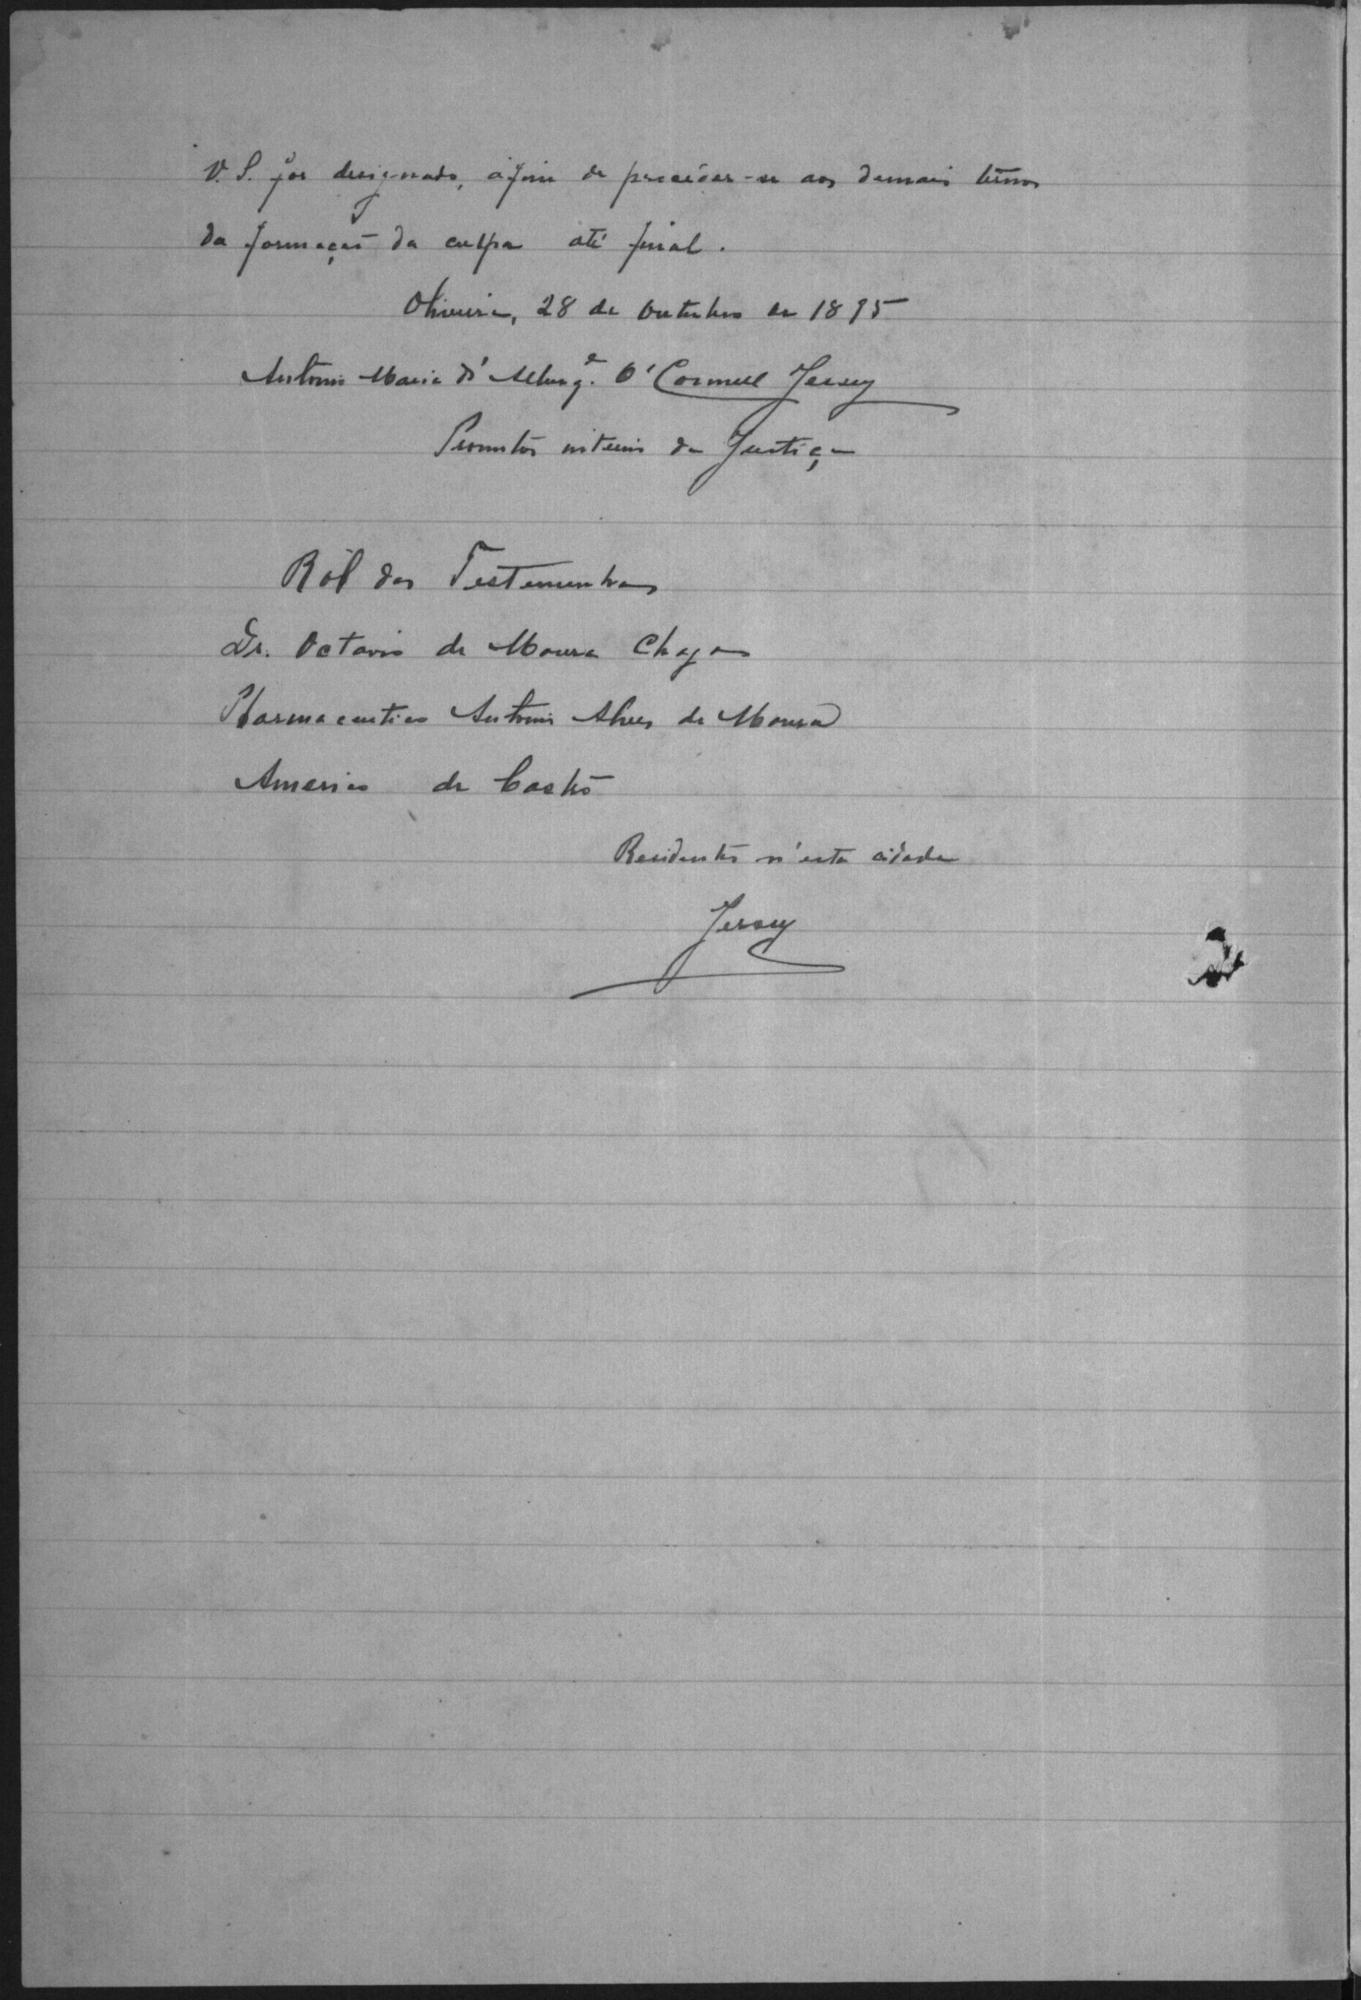 V. S. fôr designado, afim de proceder-se aos demais termos
da formação da culpa até final.
Oliveira, 28 de Outubro de 1895
Antonio Maria d'Albuq.e O'Connell Jersey
Promotor interino da Justiça
Ról das Testemunhas
Dr. Octavio de Moura Chagas
Pharmaceutico Antonio Alves de Moura
Americo de Castro
Residentes n'esta cidade
Jersey